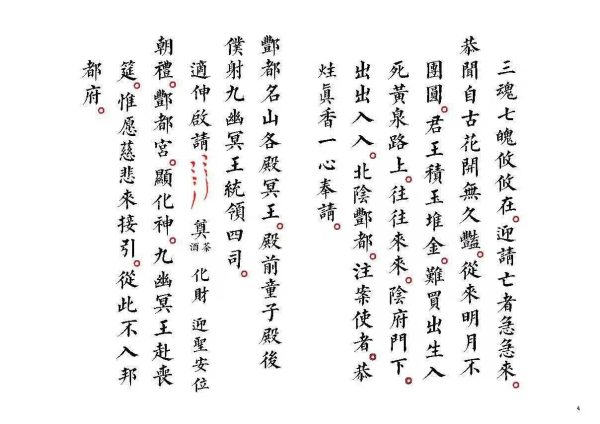 三魂七魄攸攸在。迎請亡者急急來。
恭聞自古花開無久豔。從來明月不
團圓。君王積玉堆金。難買出生入
死黃泉路上。往往來來。陰府門下。
出出入入。北陰酆都。注案使者。恭
炷眞香一心奉請。
酆都名山各殿冥王。殿前童子殿後
僕射九幽冥王統領四司。
適伸啟請 奠茶酒 化財 迎聖安位
朝禮。酆都宮。顯化神。九幽冥王赴喪
筵。惟愿慈悲來接引。從此不入邦
都府。
4